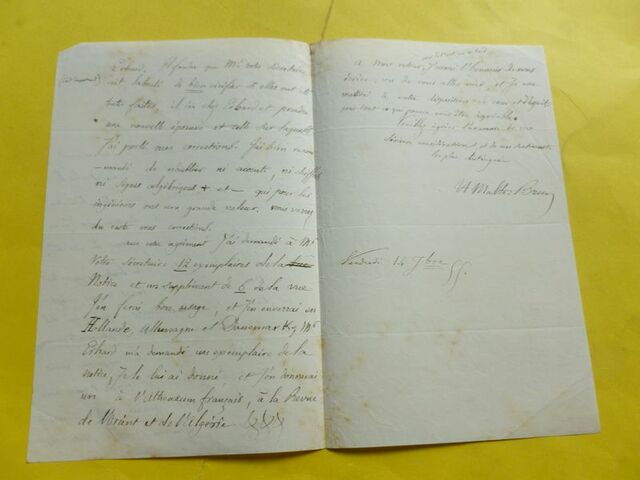 Erhard, afin que Mr votre Secrétaire
ait la bonté de bien vérifier si elles ont été
toutes faites, il ira chez Erhard et prendra
une nouvelle épreuve et celle sur laquelle
j'ai porté mes corrections. J'ai bien recom-
mandé de n'oublier ni accents, ni chiffres
ni signes algébriques + et - qui pour les
ingénieurs ont une grande valeur. vous verrez
du reste mes corrections.
avec votre agrément J'ai demandé à Mr
Votre Secrétaire 12 exemplaires de la
Notice et un supplément de 6 de la vue
J'en ferai bon usage, et J'en enverrai en
Hollande, Allemagne et Danemark, Mr
Erhard m'a demandé un exemplaire de la
notice, Je le lui ai donné, et J'en donnerai
un à l'Athenaeum français, à la Revue
de l'orient et de l'Algérie
A mon retour, J'aurai l'honneur de vous
écrire, ou de vous aller voir, et Je me
mettrai à votre disposition
pour tout ce qui pourra vous être agréable.
Veuillez agréer l'assurance de ma
sérieuse considération, et de mes sentiments
les plus distingués
VA Malte-Brun
Vendredi 14 7bre 55.